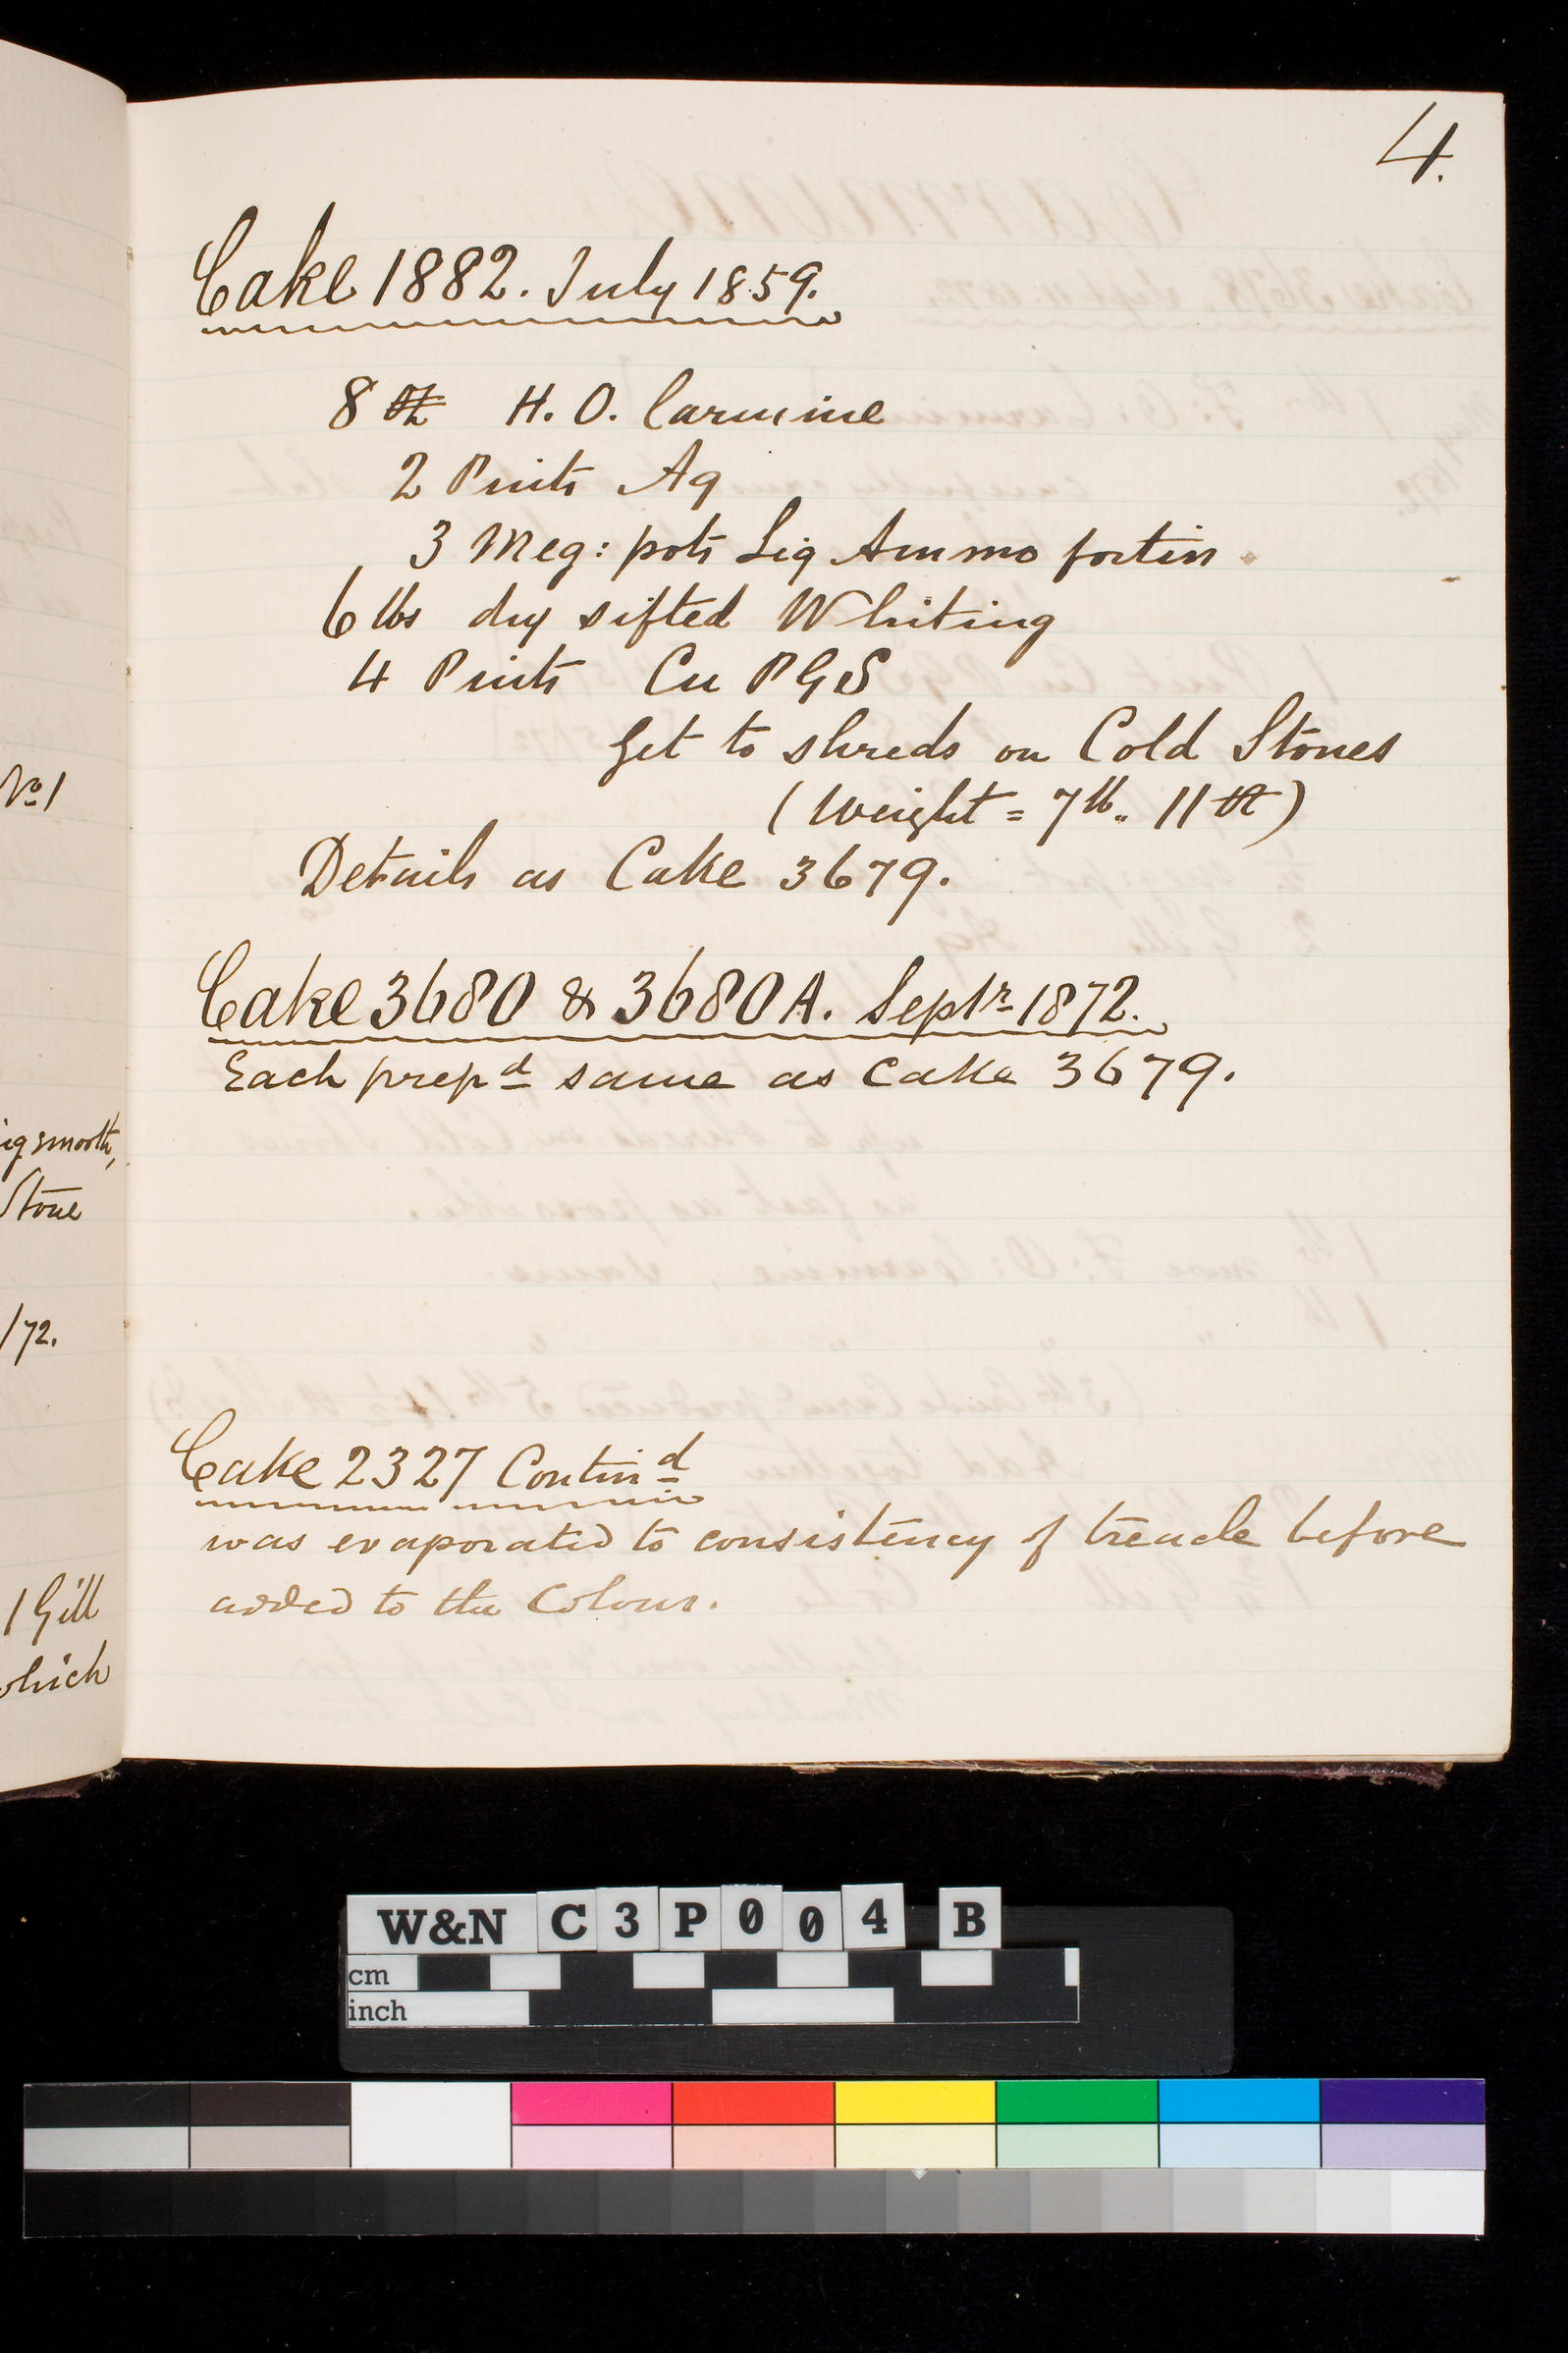 4.
Cake 1882. July 1859.
8 oz H. O. Carmine
2 Pints Aq
3 Meg: pots Liq Ammo fortiss
6 lbs dry sifted Whiting
4 Pints Cu P G S
Get to shreds on Cold Stones
(Weight = 7 lb.. 11 oz)
Details as Cake 3679.
Cake 3680 & 3680A. Septr 1872.
Each prepd same as Cake 3679.
Cake 2327 Contind
was evaporated to consistency of treacle before
added to the Colour.
No 1
smooth,
Stone
/72.
1 Gill
which
W&N C3P004 B
cm
inch